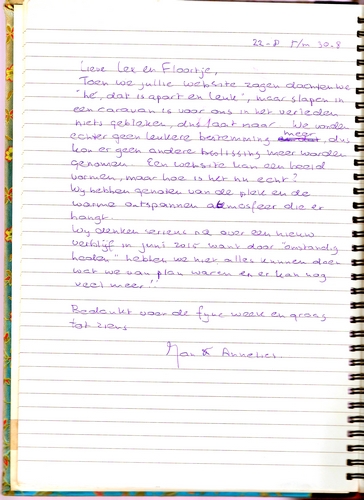 22-8 t/m 30-8
Lieve Lex en Floortje,
Toen we jullie website zagen dachten we
"hé, dat is apart en leuk", maar slapen in
een caravan is voor ons in het verleden
niets gebleken, dus laat maar. We vonden
echter geen leukere bestemming meer, dus
kon er geen andere beslissing meer worden
genomen. Een website kan een beeld
vormen, maar hoe is het nu echt?
Wij hebben genoten van de plek en de
warme ontspannen atmosfeer die er
hangt.
Wij denken serieus na over een nieuw
verblijf in juni 2015 want door "omstandig
heden" hebben we niet alles kunnen doen
wat we van plan waren en er kan nog
veel meer!!
Bedankt voor de fijne week en graag
tot ziens
Jan & Annelies